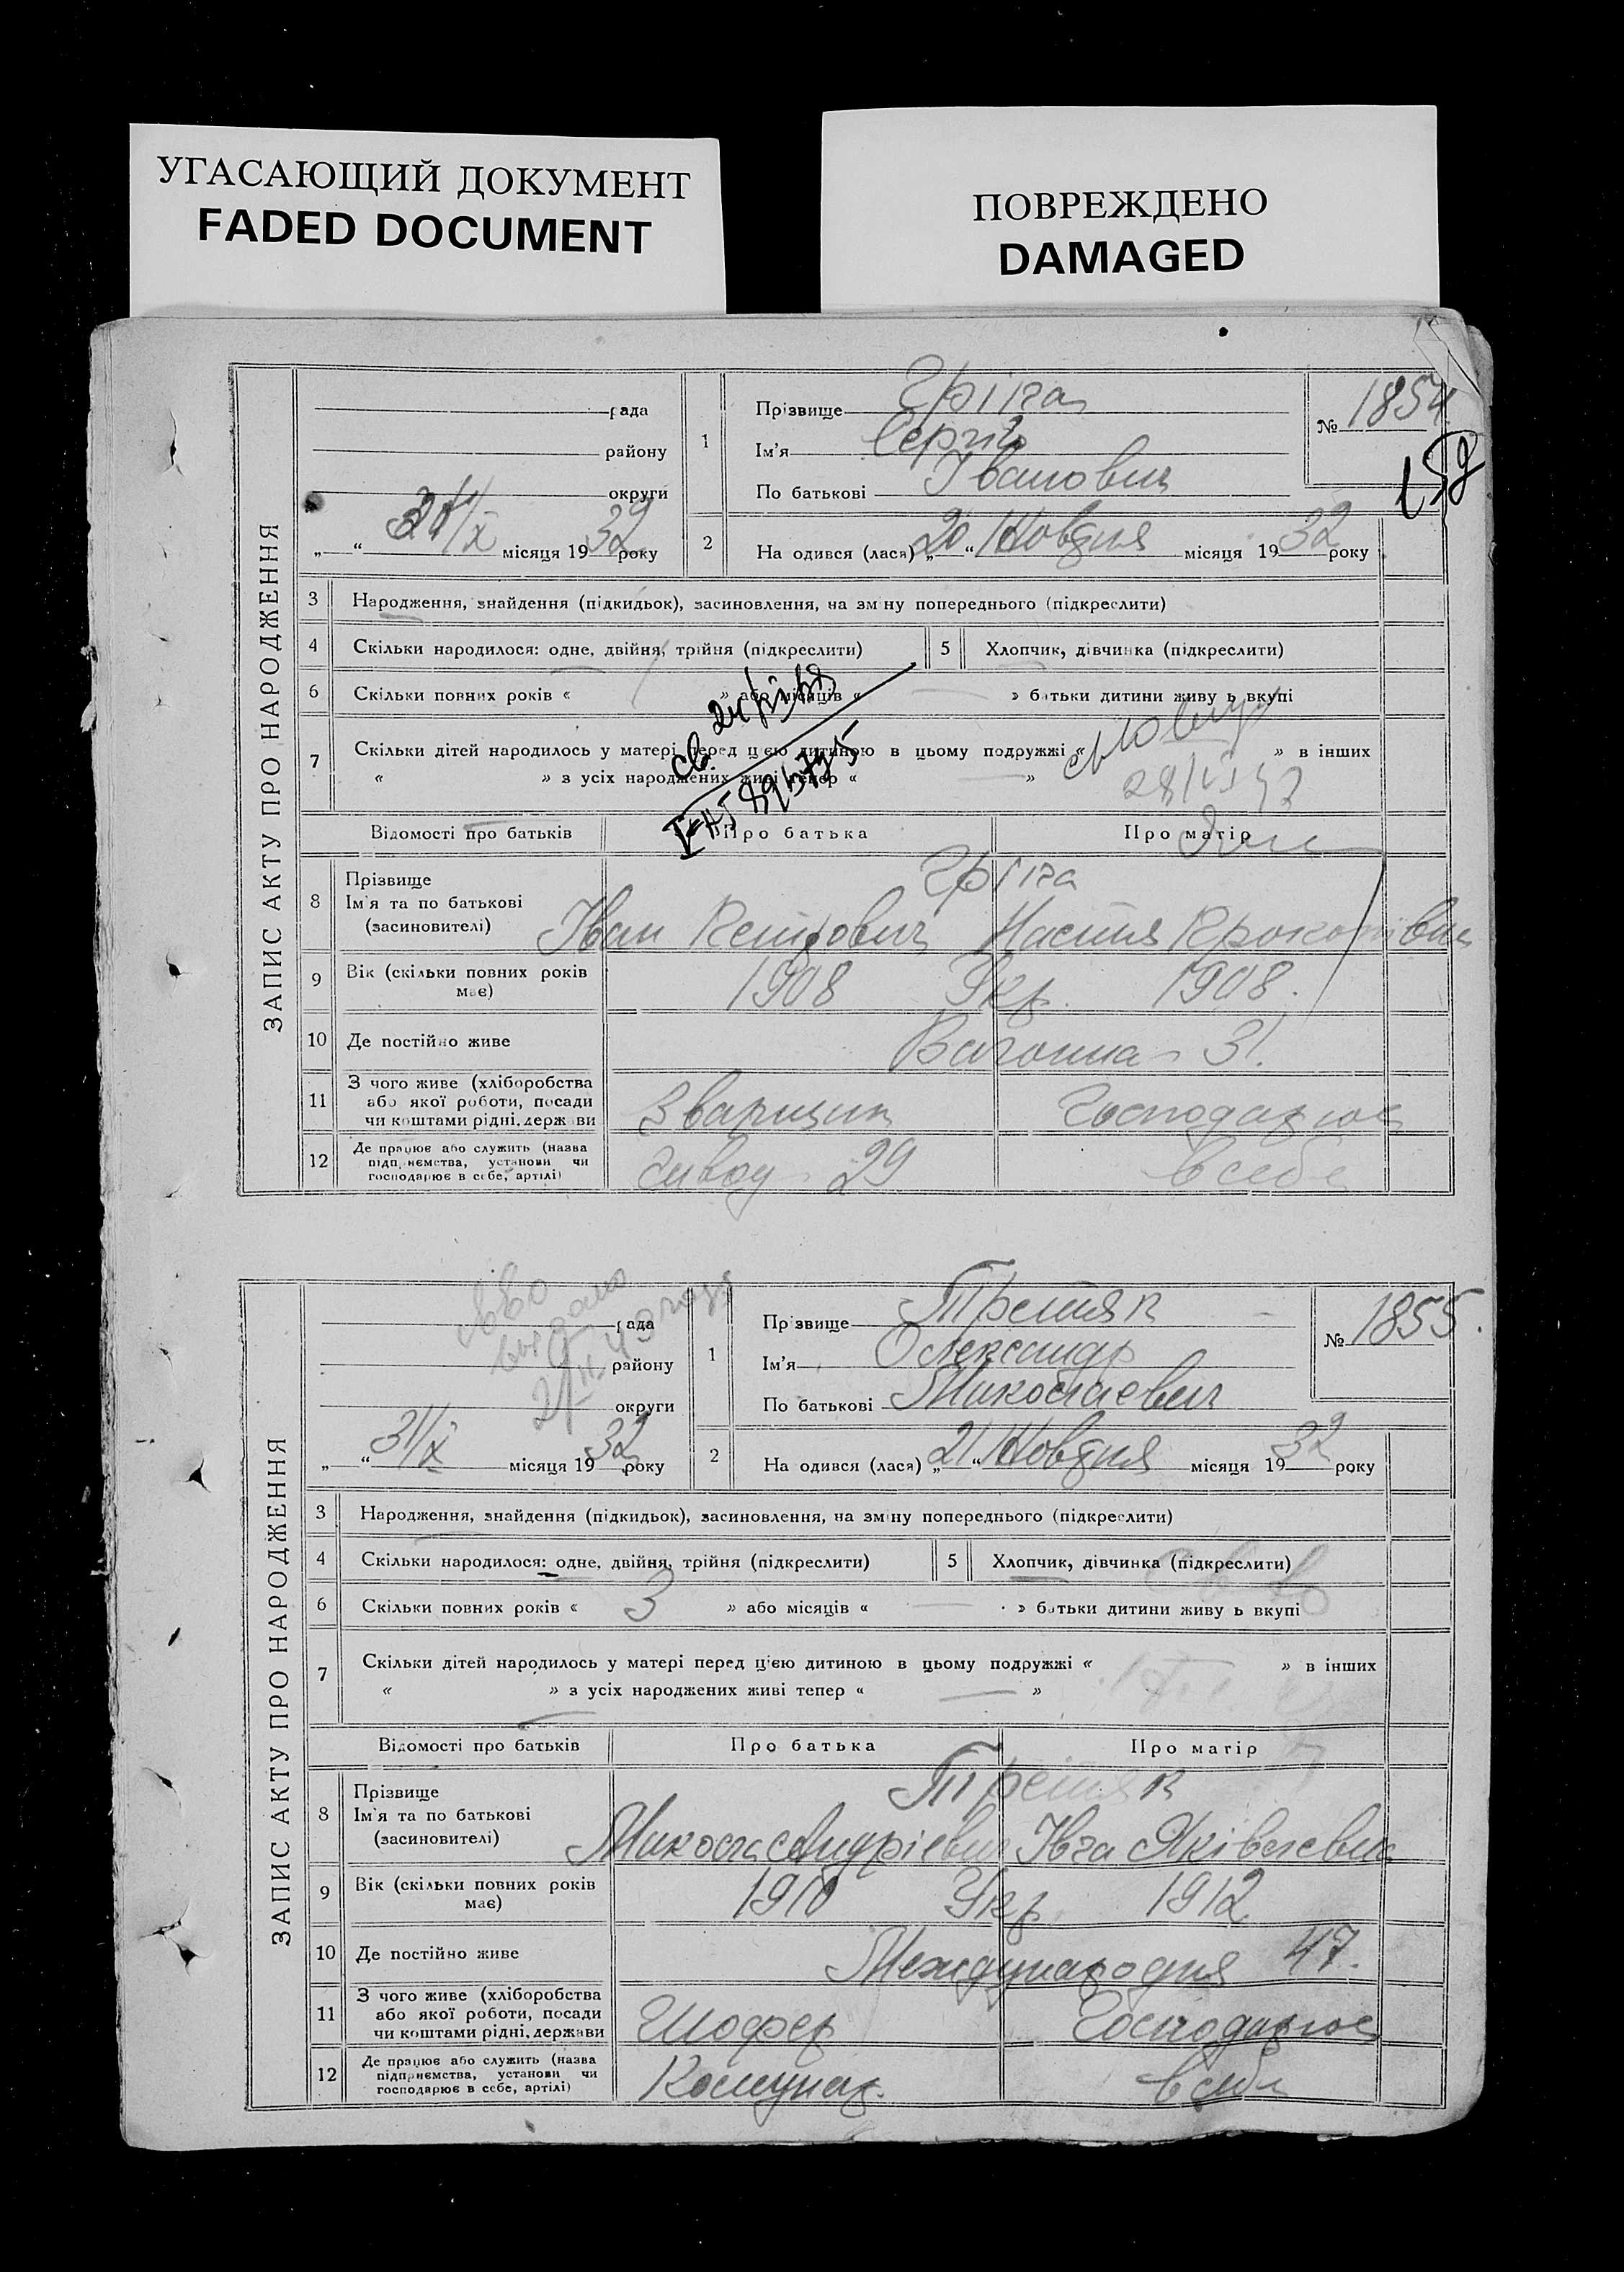 УГАСАЮЩИЙ ДОКУМЕНТ
FADED DOCUMENT
ПОВРЕЖДЕНО
DAMAGED
ЗАПИС АКТУ ПРО НАРОДЖЕННЯ
рада
району
округи
„ “ 31/X місяця 1932 року
1 Прізвище Гріга
Ім'я Сергій
По батькові Іванович
№ 1854
158
2 На одився (лася) „20“ Жовтня місяця 1932 року
3 Народження, знайдення (підкидьок), засиновлення, на зміну попереднього (підкреслити)
4 Скільки народилося: одне, двійня, трійня (підкреслити) 5 Хлопчик, дівчинка (підкреслити)
6 Скільки повних років « 1 » або місяців « — » батьки дитини живуть вкупі
7 Скільки дітей народилось у матері перед цією дитиною в цьому подружжі « » в інших
« » з усіх народжених живі тепер « — »
Відомості про батьків Про батька Про матір
8 Прізвище
Ім'я та по батькові
(засиновителі)
Гріга
Іван Петрович Настя Прокопівна
9 Вік (скільки повних років має) 1908 Укр. 1908.
10 Де постійно живе Вагонна - 31.
11 З чого живе (хліборобства
або якої роботи, посади
чи коштами рідні, держави
Зварщик Господарює
12 Де працює або служить (назва
підприємства, установи чи
господарює в себе, артілі)
Завод 29 в себе
ЗАПИС АКТУ ПРО НАРОДЖЕННЯ
рада
району
округи
„ “ 31/X місяця 1932 року
1 Прізвище Третяк
Ім'я Олександр
По батькові Миколаевич
№ 1855.
2 На одився (лася) „21“ Жовтня місяця 1932 року
3 Народження, знайдення (підкидьок), засиновлення, на зміну попереднього (підкреслити)
4 Скільки народилося: одне, двійня, трійня (підкреслити) 5 Хлопчик, дівчинка (підкреслити)
6 Скільки повних років « 3 » або місяців « — » батьки дитини живуть вкупі
7 Скільки дітей народилось у матері перед цією дитиною в цьому подружжі « » в інших
« » з усіх народжених живі тепер « — »
Відомості про батьків Про батька Про матір
8 Прізвище
Ім'я та по батькові
(засиновителі)
Третяк
Микола Андрієвич Івга Яківлевна
9 Вік (скільки повних років має) 1910 Укр. 1912
10 Де постійно живе Международня 47.
11 З чого живе (хліборобства
або якої роботи, посади
чи коштами рідні, держави
Шофер Господарює
12 Де працює або служить (назва
підприємства, установи чи
господарює в себе, артілі)
Комунар. в себе